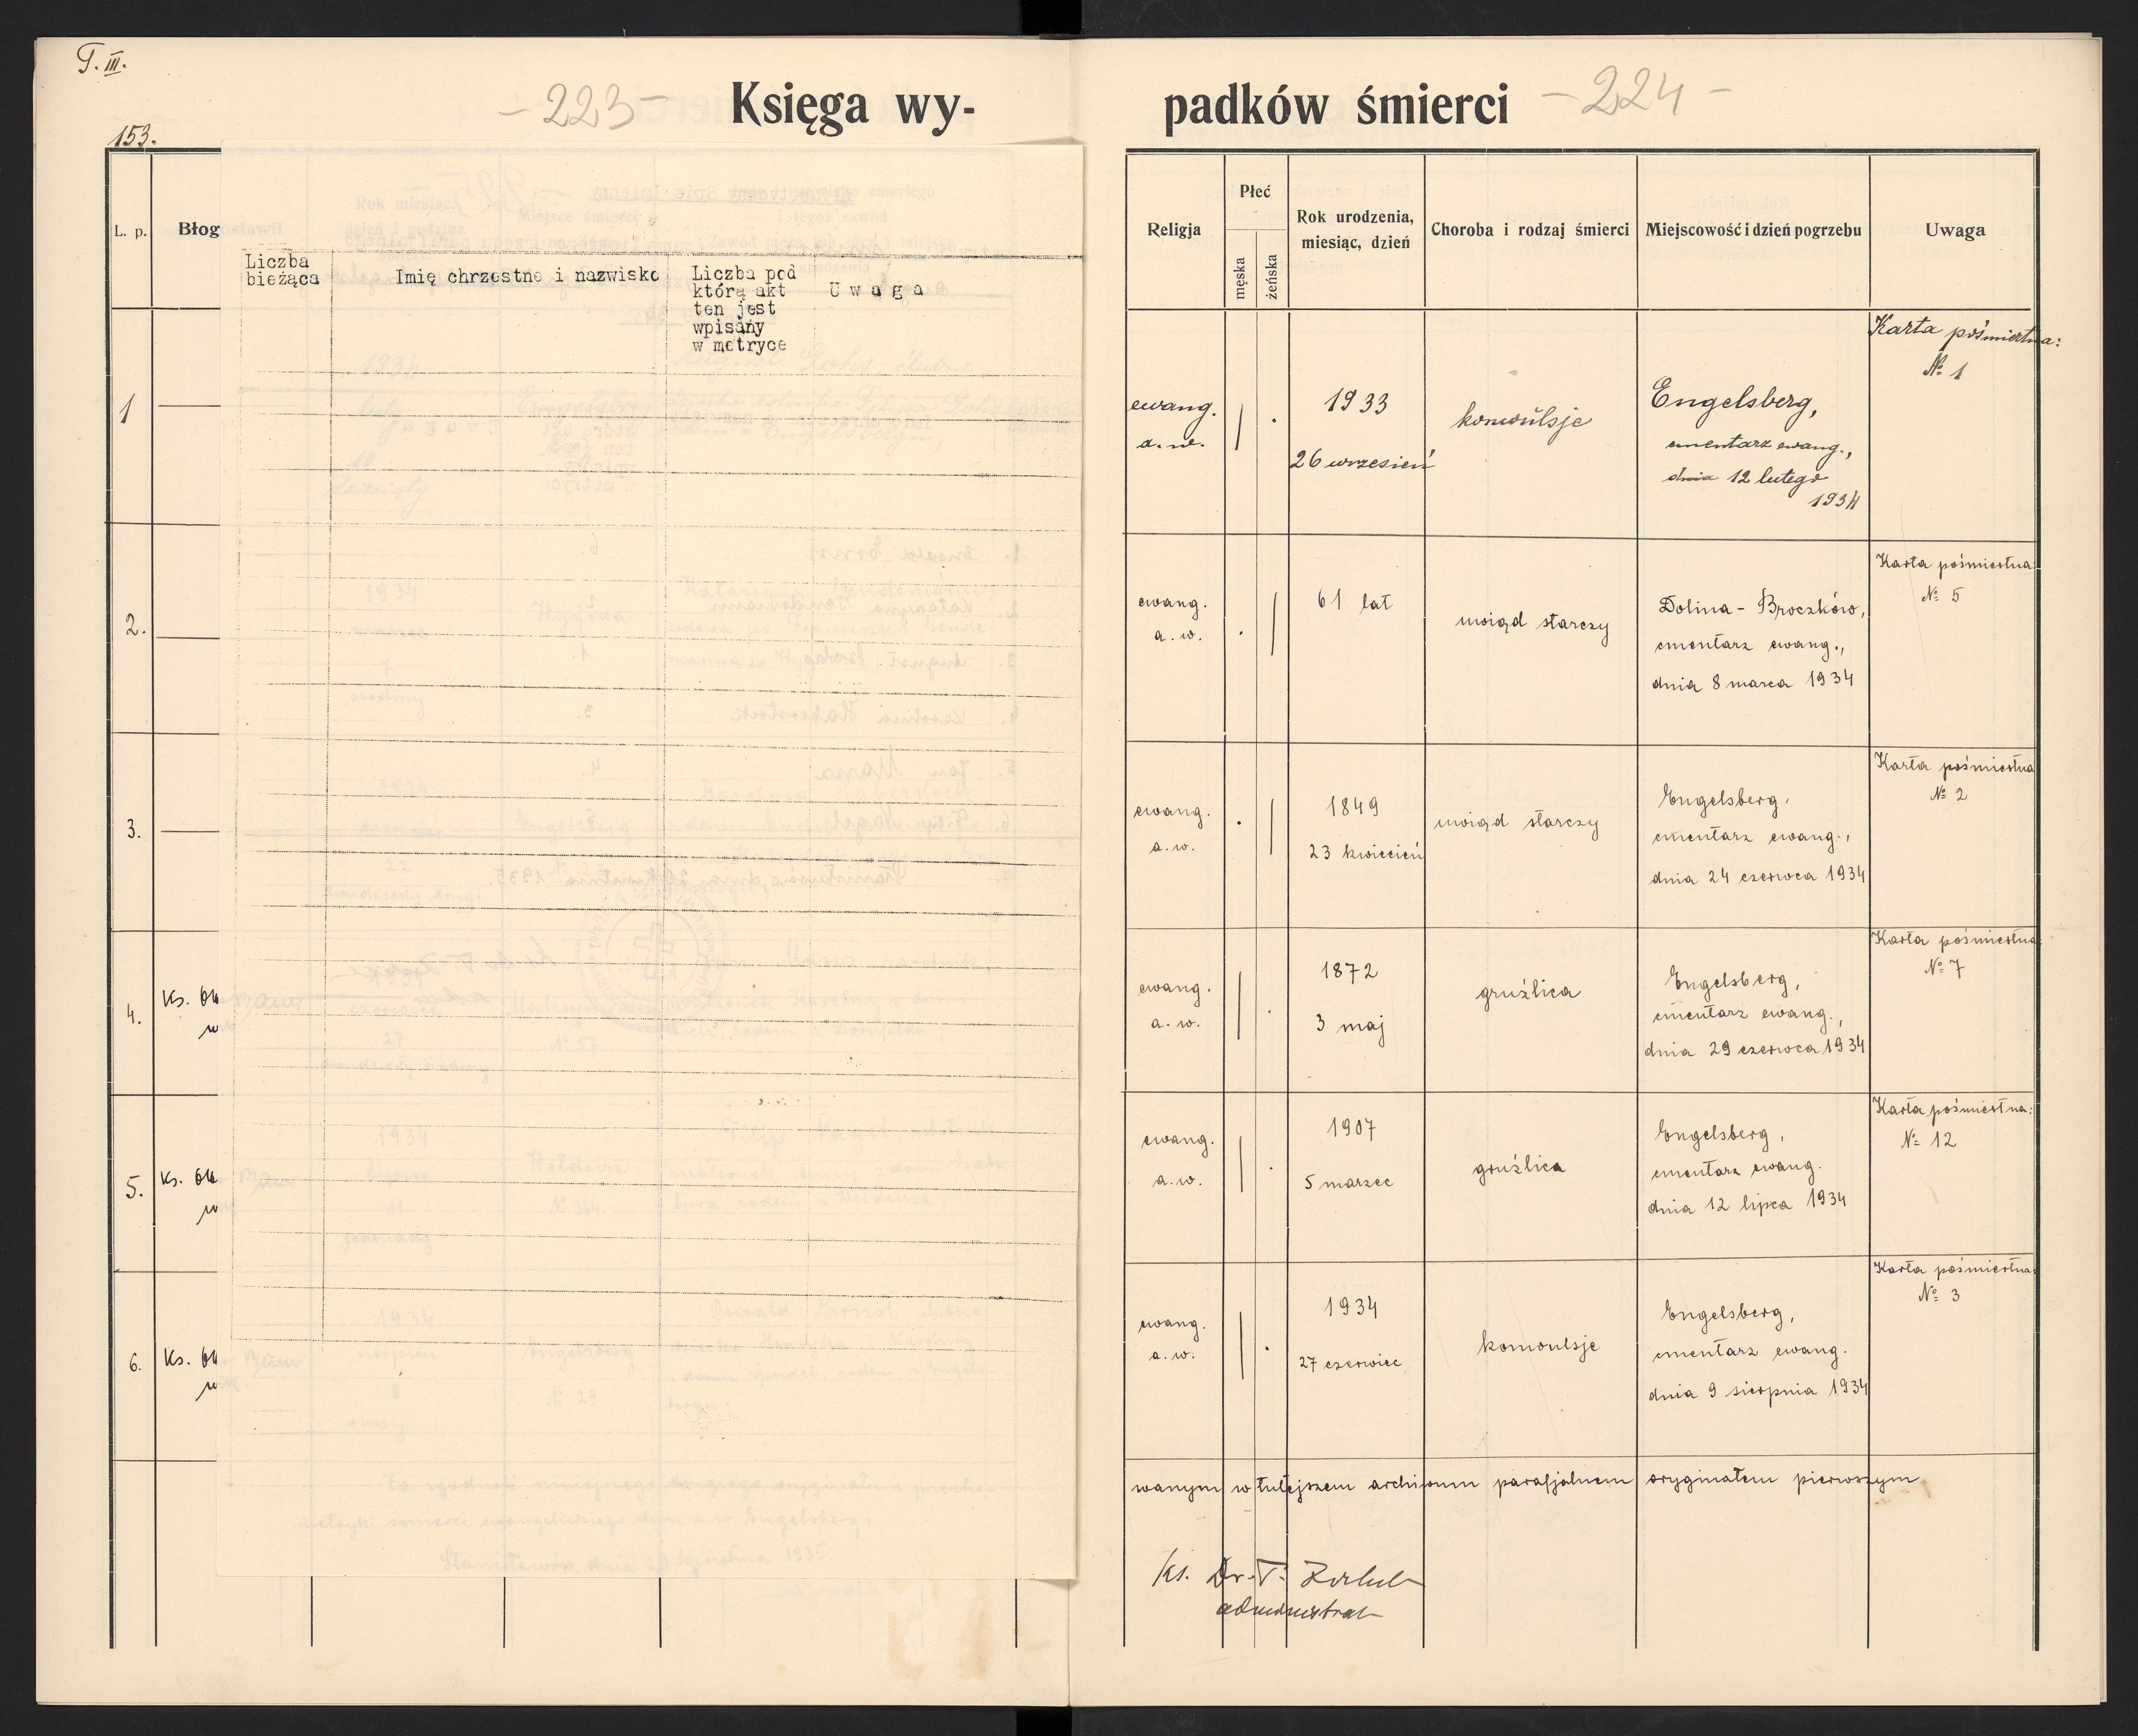 T. III.
- 223 -
Księga wy-
153.
L. p.
Błog
Liczba
bieżąca
Imię chrzestne i nazwisko
Liczba pod
którą akt
ten jest
wpisany
w metryce
U w a g a
1
2.
3.
4.
Ks.
5.
Ks.
6.
Ks.
padków śmierci
- 224 -
Religja
Płeć
męska
żeńska
Rok urodzenia,
miesiąc, dzień
Choroba i rodzaj śmierci
Miejscowość i dzień pogrzebu
Uwaga
ewang.
a. w.
1933
26 wrzesień
konwulsje
Engelsberg,
cmentarz ewang.,
dnia 12 lutego
1934
Karta pośmiertna:
№ 1
ewang.
a. w.
61 lat
uwiąd starczy
Dolina - Broczków,
cmentarz ewang.,
dnia 8 marca 1934
Karta pośmiertna:
№ 5
ewang.
a. w.
1849
23 kwiecień
uwiąd starczy
Engelsberg,
cmentarz ewang.,
dnia 24 czerwca 1934
Karta pośmiertna
№ 2
ewang.
a. w.
1872
3 maj
gruźlica
Engelsberg,
cmentarz ewang.,
dnia 29 czerwca 1934
Karta pośmiertna
№ 7
ewang.
a. w.
1907
5 marzec
gruźlica
Engelsberg,
cmentarz ewang.
dnia 12 lipca 1934
Karta pośmiertna:
№ 12
ewang.
a. w.
1934
27 czerwiec
konwulsje
Engelsberg,
cmentarz ewang.
dnia 9 sierpnia 1934
Karta pośmiertna:
№ 3
wanym w tutejszem archiwum parafjalnem oryginałem pierwszym
Ks. Dr. T.
administrat